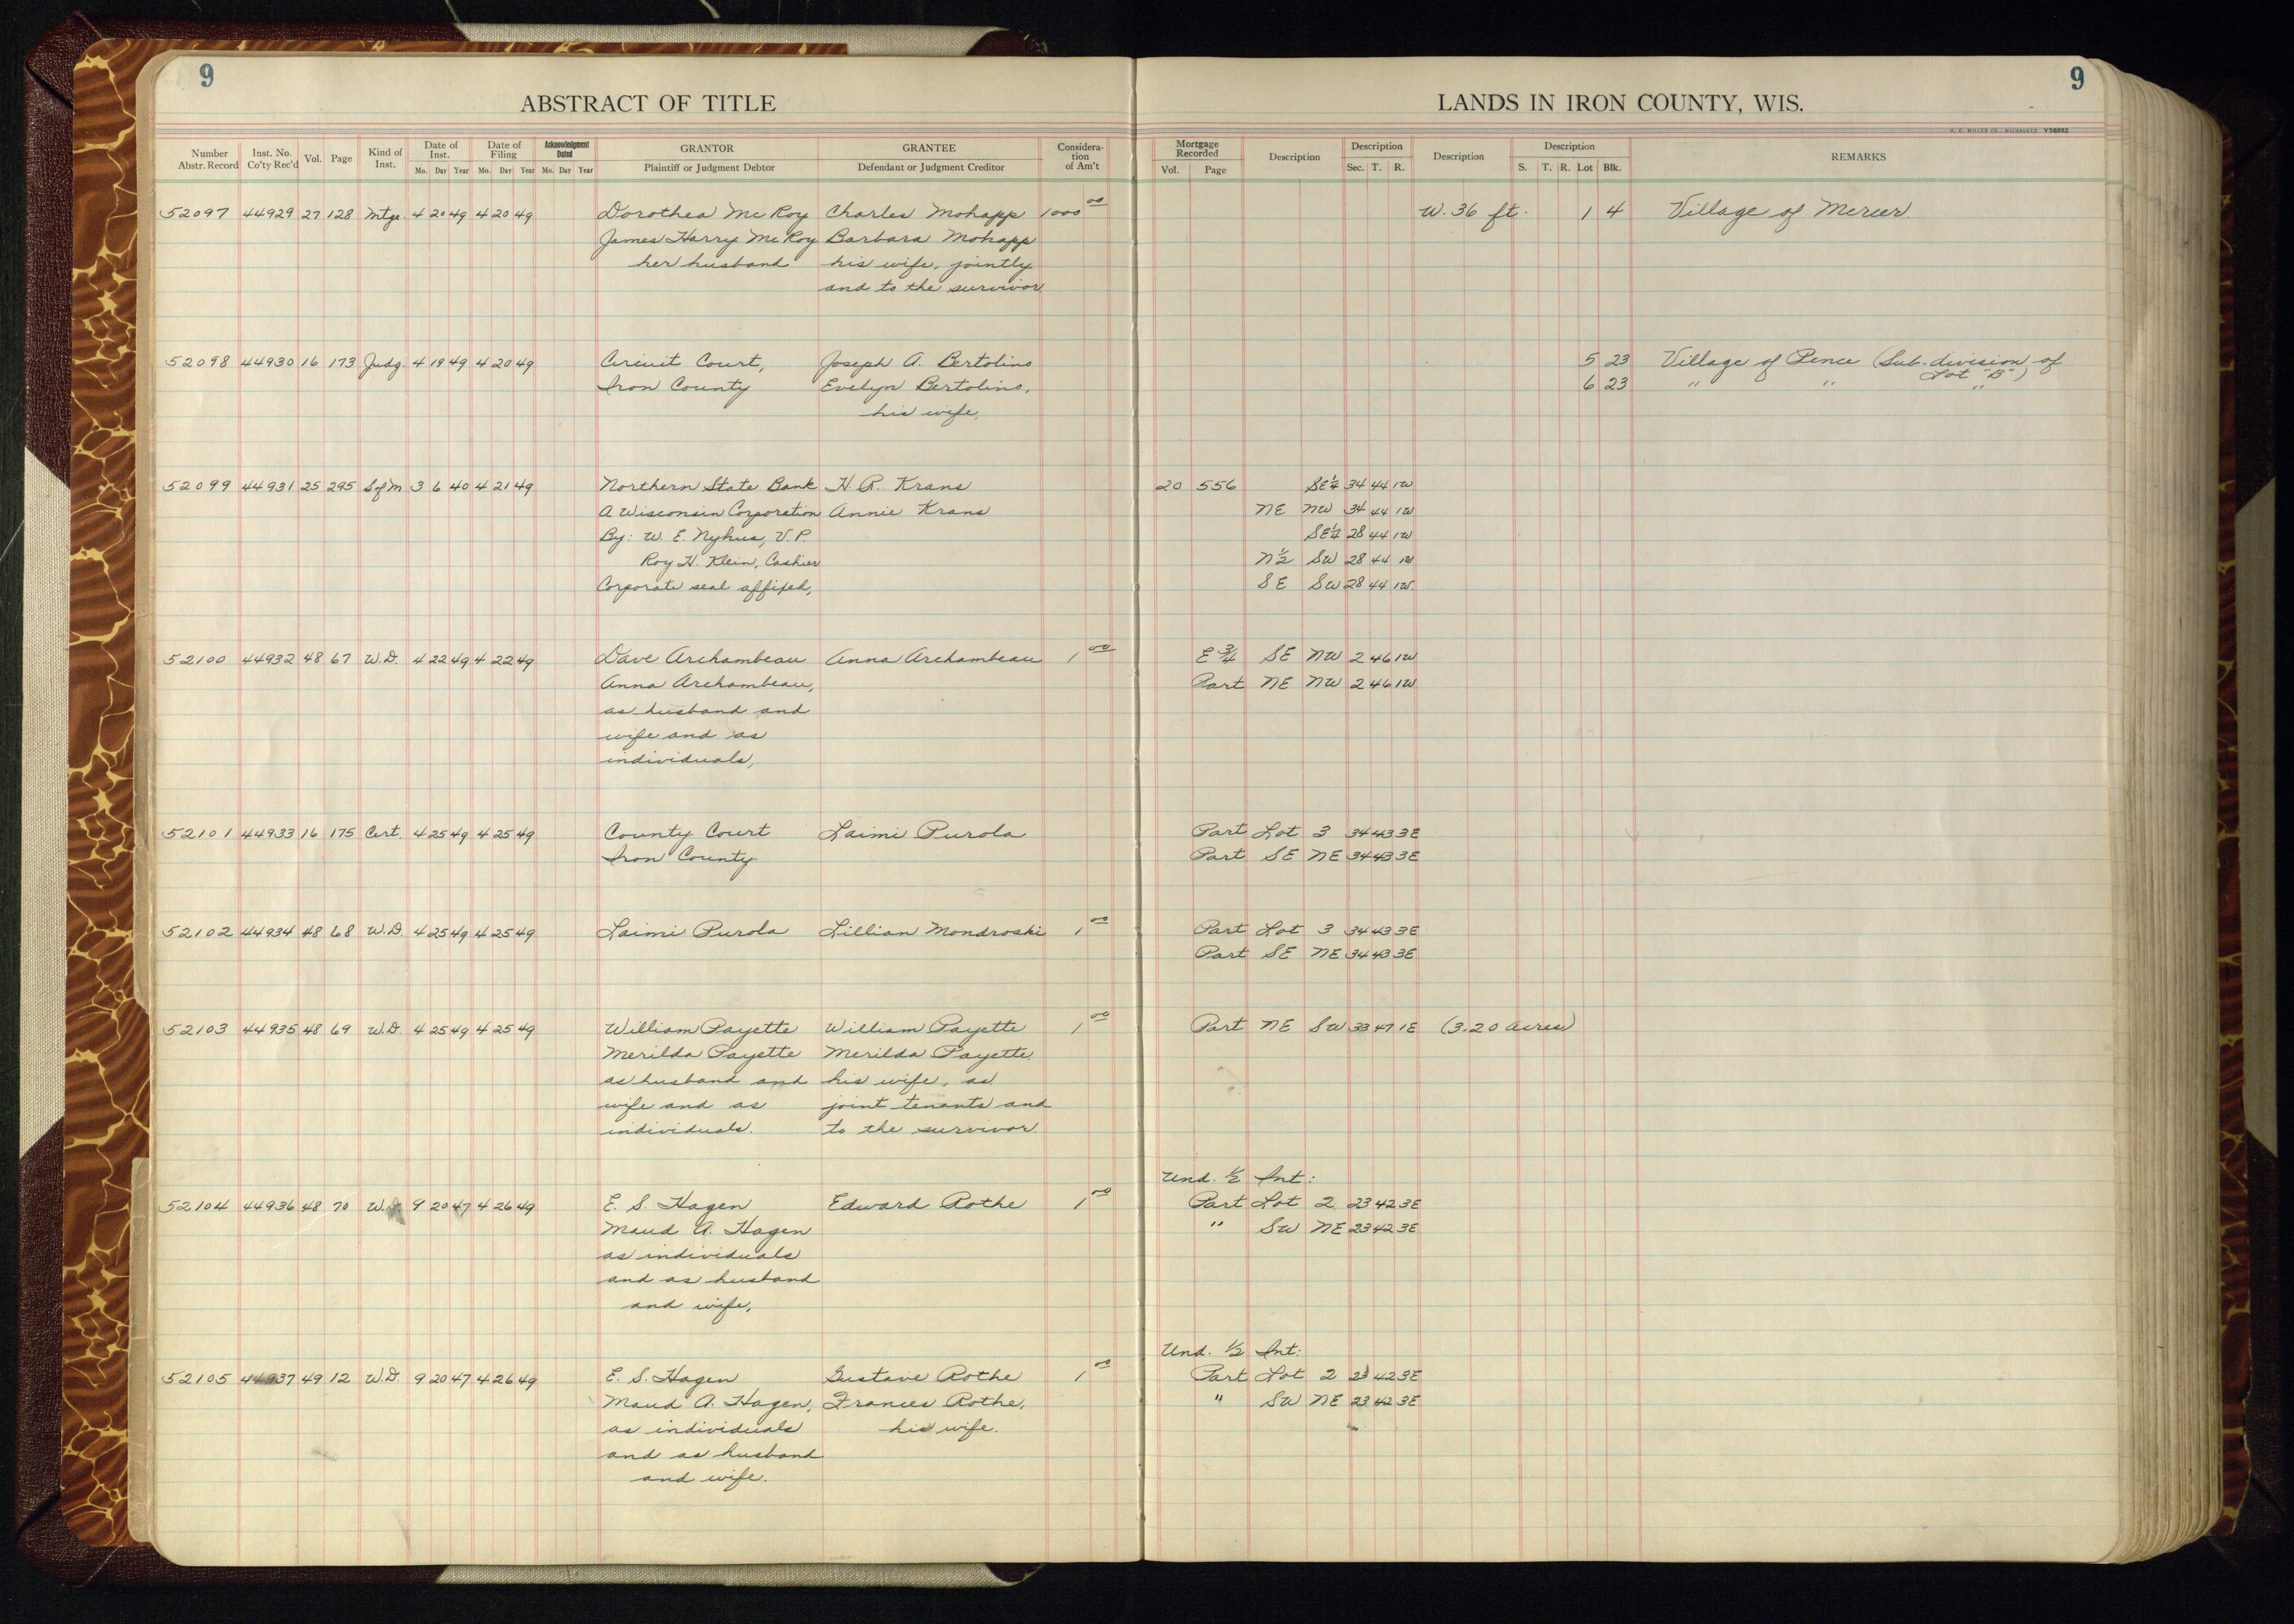 9
9
ABSTRACT OF TITLE
LANDS IN IRON COUNTY, WIS.
H. C. MILLER CO., MILWAUKEE Y56882
Number Abstr. Record Inst. No. Co'ty Rec'd Vol. Page Kind of Inst. Date of Inst. Mo. Day Year Date of Filing Mo. Day Year Acknowledgment Dated Mo. Day Year GRANTOR Plaintiff or Judgment Debtor GRANTEE Defendant or Judgment Creditor Considera- tion of Am't Mortgage Recorded Vol. Page Description Description Sec. T. R. Description Description S. T. R. Lot Blk. REMARKS
52097 44929 27 128 Mtge. 4 20 49 4 20 49 Dorothea Mc Roy Charles Mohapp 1000 00 W. 36 ft. 1 4 Village of Mercer.
James Harry Mc Roy Barbara Mohapp
her husband his wife, jointly
and to the survivor
52098 44930 16 173 Judg. 4 19 49 4 20 49 Circuit Court, Joseph A. Bertolino 5 23 Village of Pence (Sub-division of
Iron County Evelyn Bertolino, 6 23 " " Lot "B") "
his wife,
52099 44931 25 295 S of M 3 6 40 4 21 49 Northern State Bank H. R. Krans 20 556 SE 1/4 34 44 1W
A Wisconsin Corporation Annie Krans NE NW 34 44 1W
By: W. E. Nyhus, V.P. SE 1/4 28 44 1W
Roy H. Klein, Cashier N 1/2 SW 28 44 1W
Corporate seal affixed, SE SW 28 44 1W.
52100 44932 48 67 W.D. 4 22 49 4 22 49 Dave Archambeau Anna Archambeau 1 00 E 3/4 SE NW 2 46 1W
Anna Archambeau, Part NE NW 2 46 1W
as husband and
wife and as
individuals,
52101 44933 16 175 Cert. 4 25 49 4 25 49 County Court Laimi Purola Part Lot 3 34 43 3E
Iron County Part SE NE 34 43 3E
52102 44934 48 68 W.D. 4 25 49 4 25 49 Laimi Purola Lillian Mondroski 1 00 Part Lot 3 34 43 3E
Part SE NE 34 43 3E
52103 44935 48 69 W.D. 4 25 49 4 25 49 William Payette William Payette 1 00 Part NE SW 33 47 1E (3.20 acres)
Merilda Payette Merilda Payette
as husband and his wife, as
wife and as joint tenants and
individuals. to the survivor.
Und. 1/2 Int:
52104 44936 48 70 W.D. 9 20 47 4 26 49 E. S. Hagen Edward Rothe 1 00 Part Lot 2 23 42 3E
Maud A. Hagen " SW NE 23 42 3E
as individuals
and as husband
and wife,
Und. 1/2 Int:
52105 44937 49 12 W.D. 9 20 47 4 26 49 E. S. Hagen Gustave Rothe 1 00 Part Lot 2 23 42 3E
Maud A. Hagen, Frances Rothe, " SW NE 23 42 3E
as individuals his wife.
and as husband
and wife.